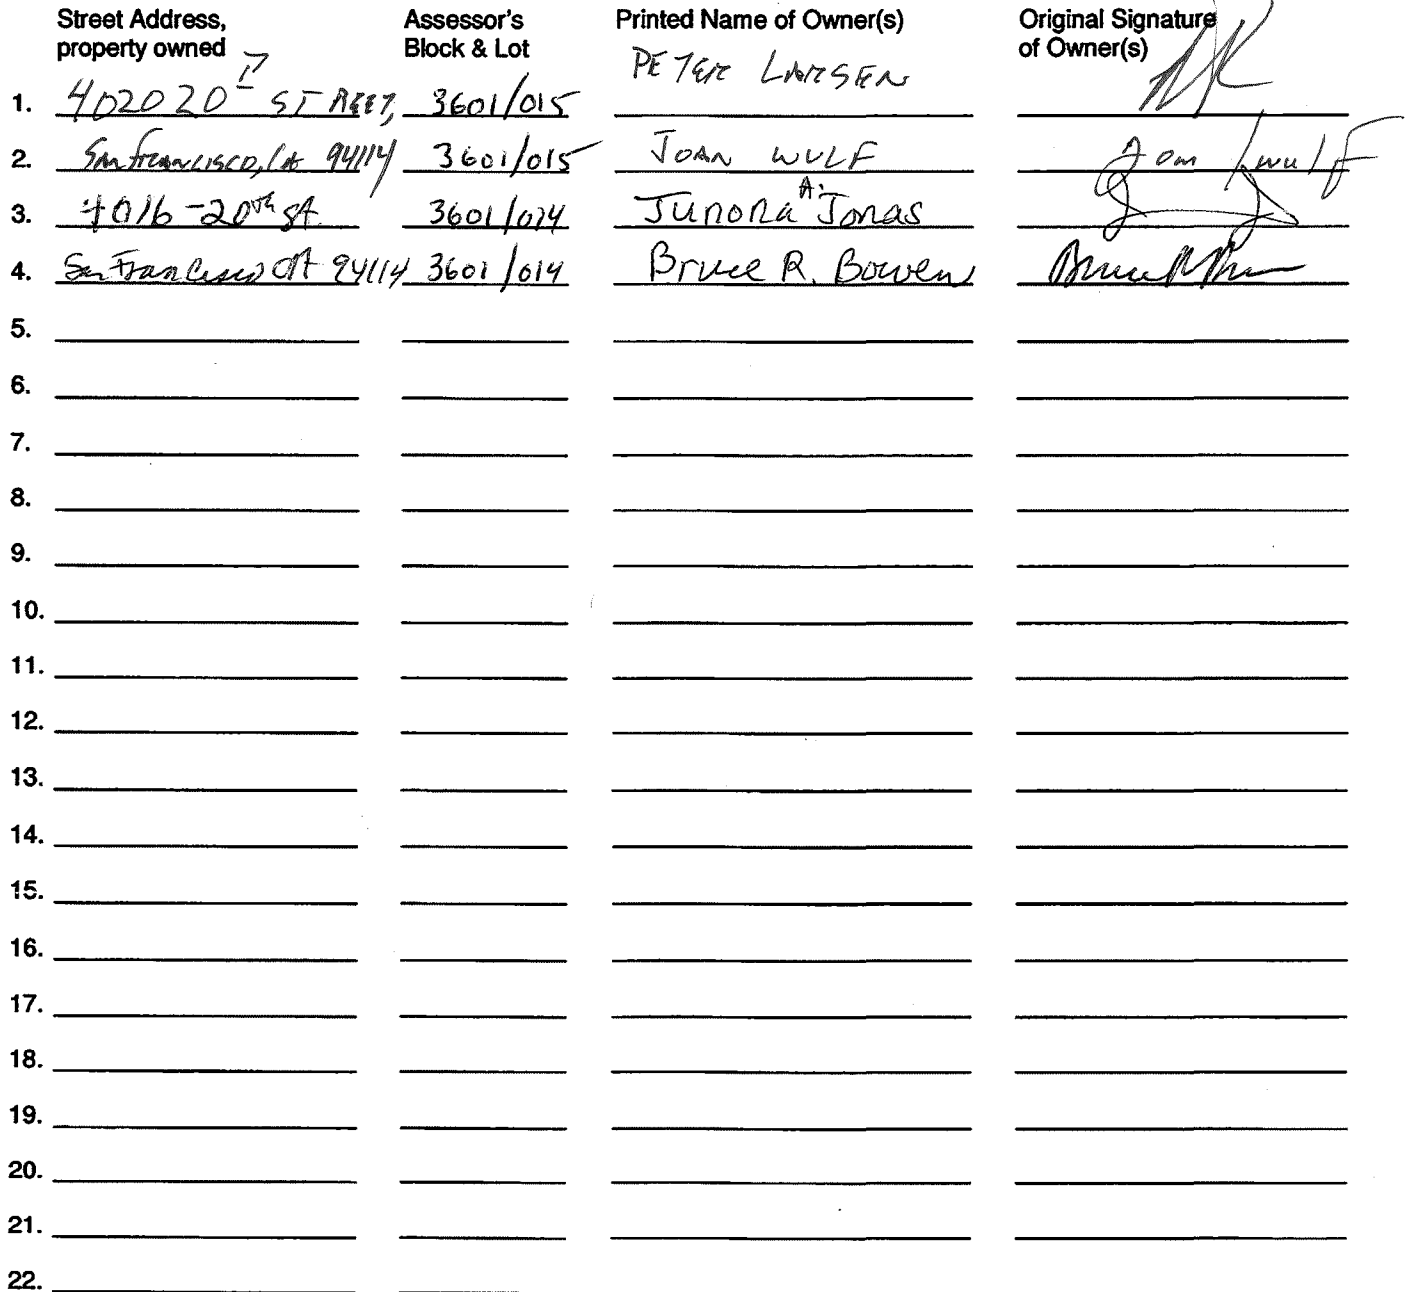 Street Address, Assessor's Printed Name of Owner(s) Original Signature
property owned Block & Lot of Owner(s)
1. 4020 20th STREET, 3601/015 PETER LARSEN
2. San Francisco, CA 94114 3601/015 JOAN WULF Joan Wulf
3. 4016-20th St. 3601/014 Junona A. Jonas
4. San Francisco CA 94114 3601/014 Bruce R. Bowen
5.
6.
7.
8.
9.
10.
11.
12.
13.
14.
15.
16.
17.
18.
19.
20.
21.
22.